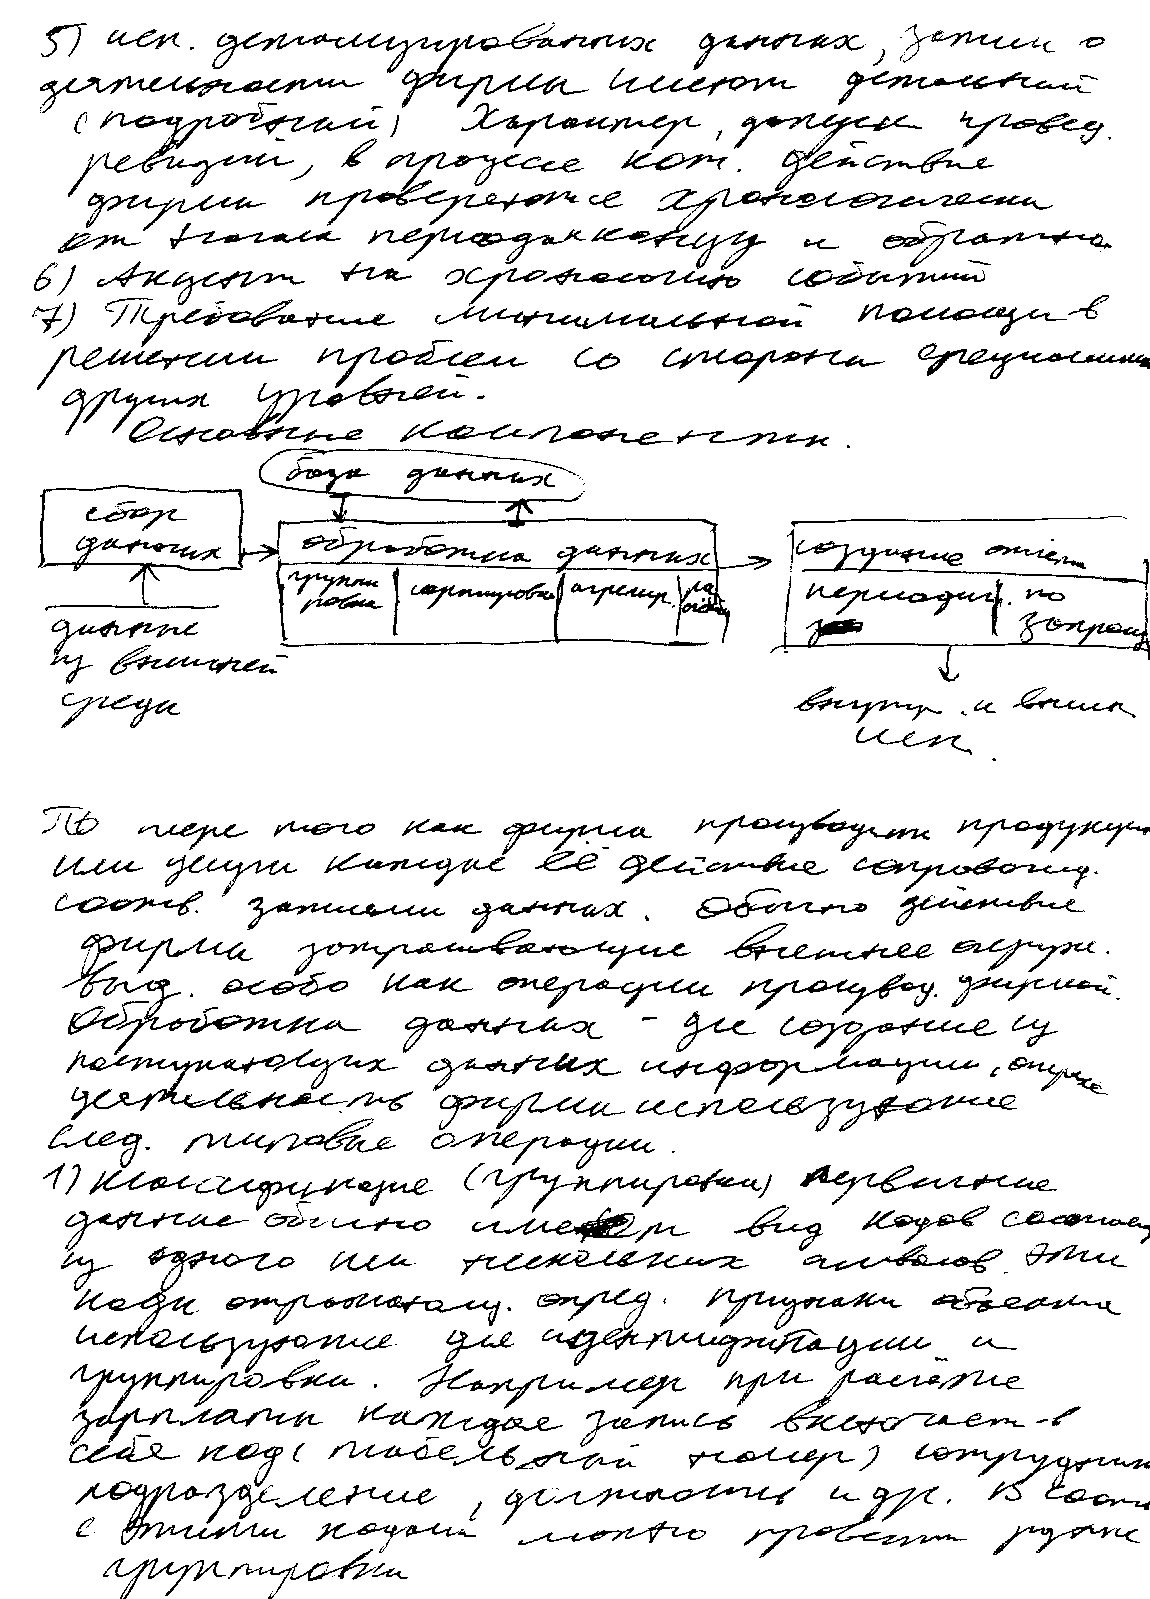 5) исп. детализированных данных, записи о
деятельности фирмы имеют детальный
(подробный) характер, допуск. провед.
ревизий, в процессе кот. действие
фирмы проверяются хронологически
от начала периода к концу и обратно
6) Акцент на хронологию событий
7) Требование минимальной помощи в
решении проблем со стороны специалистов
других уровней.
Основные компоненты.
база данных
сбор
данных
обработка данных
группи
ровка
сортировка
агрегир.
создание отчет
периодич.
по
запросу
данные
из внешней
среды
внутр. и внешн
исп.
По мере того как фирма производит продукцию
или услуги каждое её действие сопровожд.
соотв. записями данных. Обычно действие
фирмы затрагивающие внешнее окруж.
выд. особо как операции производ. фирмой.
Обработка данных – для создание из
поступающих данных информации, отраж
деятельность фирмы используются
след. типовые операции.
1) Классификация (группировка) первичные
данные обычно имеют вид кодов состоящ
из одного или нескольких символов. Эти
коды опред. признаки объекта
используются для идентификации и
группировки. Например при расчёте
зарплаты каждая запись включает в
себя код (табельный номер) сотрудник
подразделение, должность и др. В соотв
с этими кодами можно провести разные
группировки